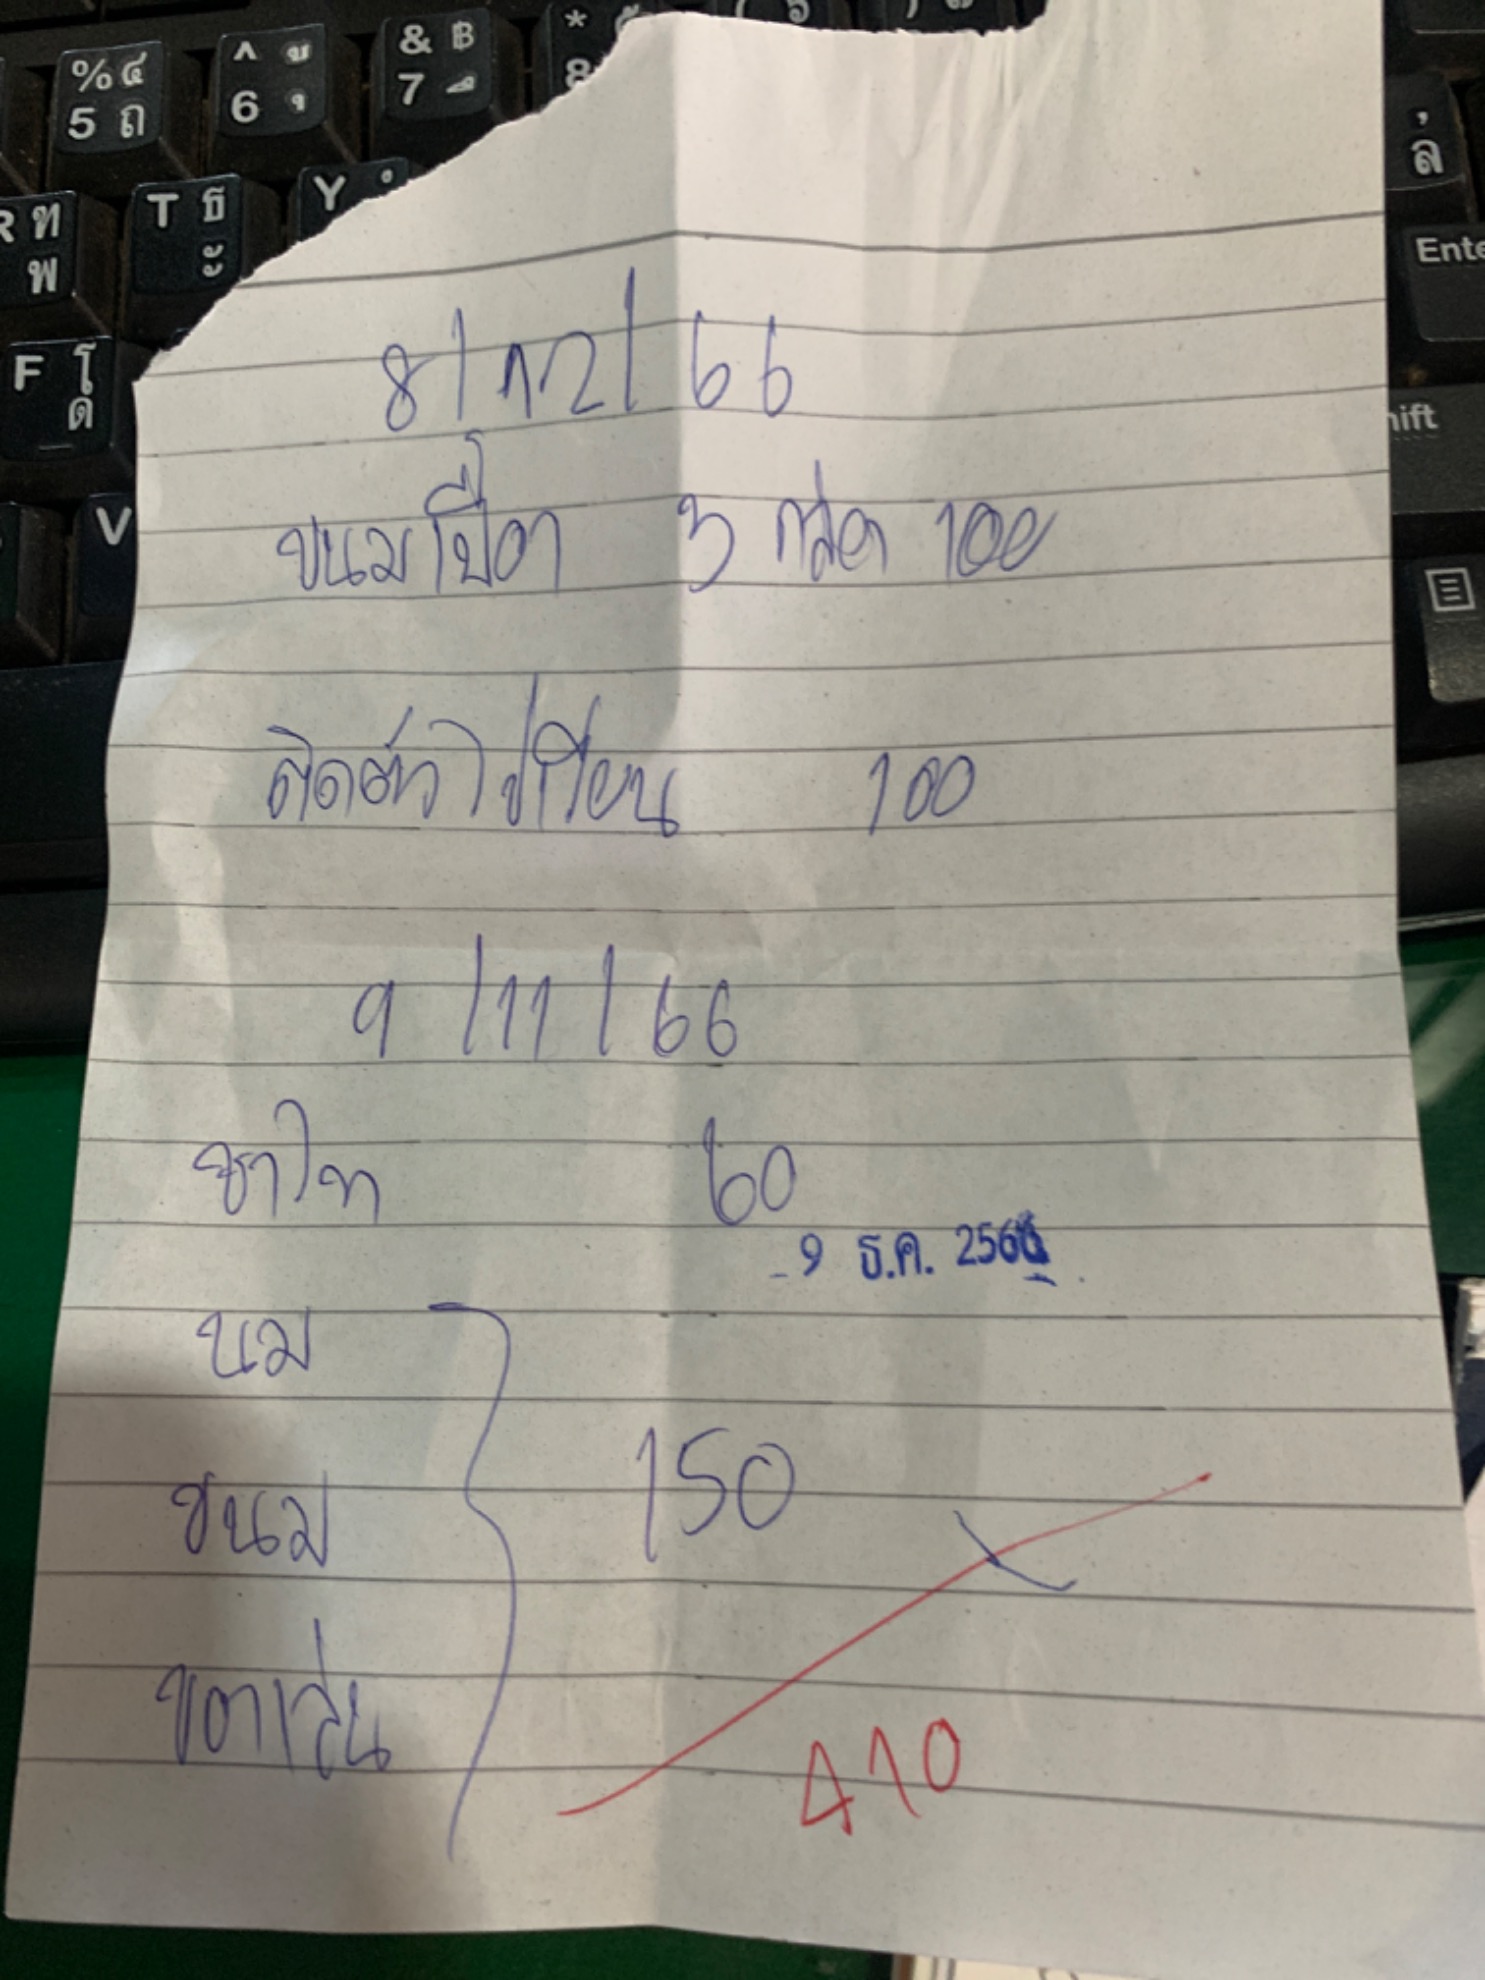 % ๕ ^ ู & ฿ *
5 ถ 6 ุ 7 ึ 8
R ฑ T ธ Y ํ
พ ะ
, ล
Ente
F โ
ด
hift
V
8/12/66
ขนมเปี๊ยะ 3 กล่อง 100
ติดตัวไปเรียน 100
9/11/66
ชาไท 60
9 ธ.ค. 2566
นม
ขนม 150
ขอทาน
410